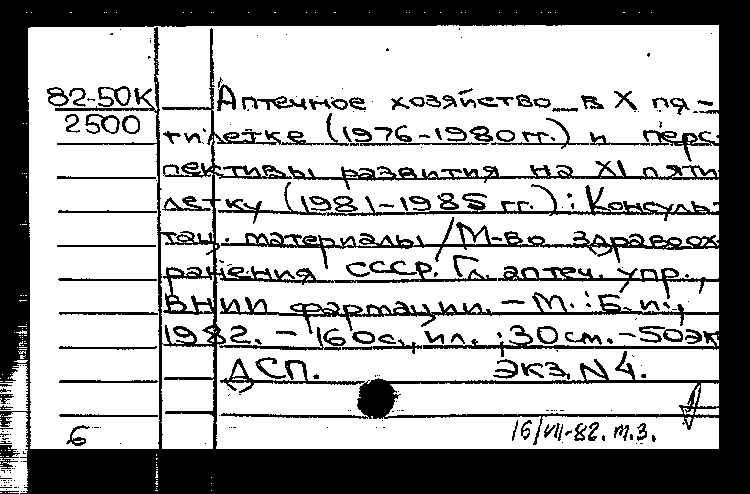 82-50К Аптечное хозяйство в X пя-
2500 тилетке (1976-1980 гг.) и перс
пективы развития на XI пяти
летку (1981-1985 гг.): Консуль-
тац. материалы / М-во здравоох
ранения СССР. Гл. аптеч. упр.,
ВНИИ фармации. - М.: Б.и.,
1982. - 160 с., ил.; 30 см. - 50 эк
ДСП. Экз. N 4.
6 16/VII-82. т.з.